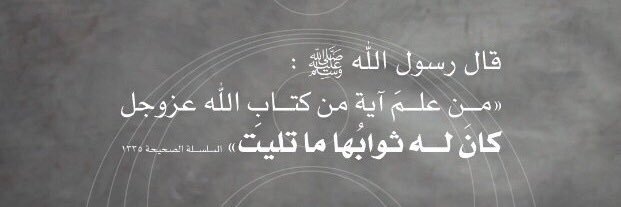 قال رسول الله ﷺ :
«مـن علـمَ آية من كتـاب الله عزوجل
كانَ لـه ثوابُها ما تليت» السلسلة الصحيحة ١٣٣٥